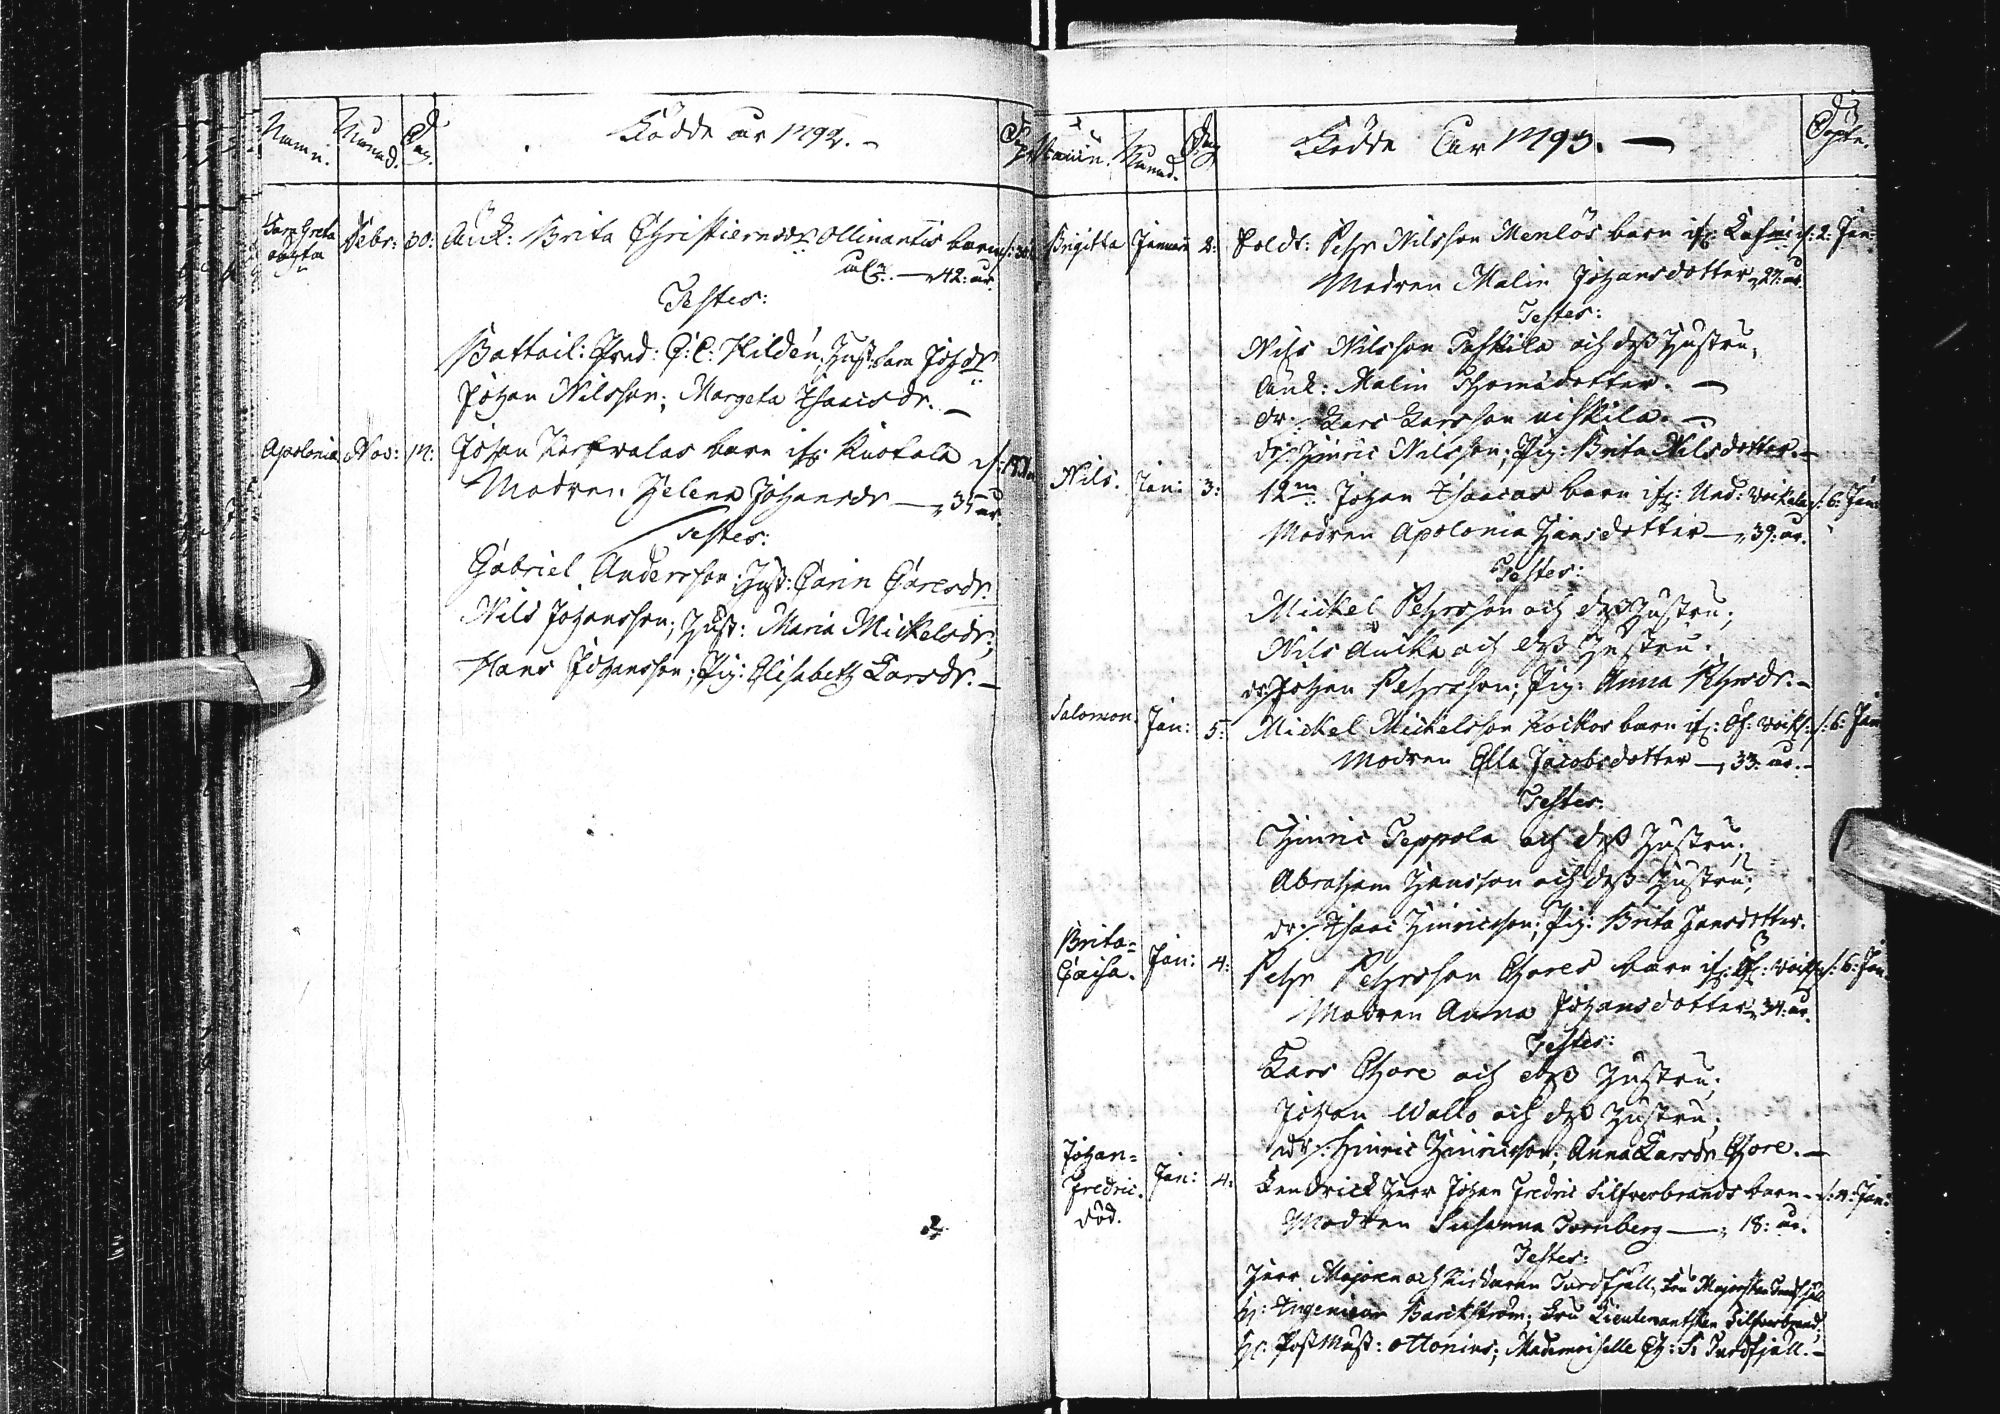 Namn. Månad. Dag. Födde år 1792.
Sara Greta
oägta
Febr: 30: Änk: Brita Christiernsdr Ollinantis barn
42: år.
Testes:
Battail: Pred: G: C: Hildén; Hust: Sara Johsdr
Johan Nilsson; Margeta Isaacsdr.
Apolonia Nov: 17: Johan barn ifr: Kustala
Modren. Helena Johansdr 35 år.
Testes:
Gabriel Andersson; Hust: Carin Carlsdr.
Nils Johansson; Hust: Maria Mickelsdr;
Hans Johansson; Pig: Elisabeth Larsdr.
Namn. Månad. Dag Födde År 1793. Döpte.
Brigitta Januari 2: Soldt: Pehr Nilsson Menlös barn ifr: d: 2: Jan:
Modren Malin Johansdotter 27: år.
Testes:
Nils Nilsson Taskila och dess Hustru;
Änk: Malin Thomsdotter.
dr: Lars Larsson
dr: Hinric Nilsson; Pig: Brita Nilsdotter.
Nils. Jan: 3: Johan Isaacas barn ifr: Ned: Woikala d: 6: Jan:
Modren Apolonia Hansdotter 39: år.
Testes:
Mickel Pehrsson och dess Hustru;
Nils och dess Hustru.
dr: Johan Pehrsson; Pig: Anna Pehrsdr.
Salomon. Jan: 5: Mickel Mickelsson Koikos barn ifr: Öf: Woik: d: 6: Jan:
Modren Ella Jacobsdotter 33: år.
Testes:
Hinric Teppola och dess Hustru;
Abraham Hansson och dess Hustru;
dr: Isaac Hinricsson; Pig: Brita Hansdotter.
Brita=
Caisa. Jan: 4: Pehr Pehrsson Thores barn ifr: Öf: Woik: d: 6: Jan.
Modren Anna Johansdotter 34: år.
Testes:
Lars Thore och dess Hustru;
Johan Wallo och dess Hustru;
dr: Hinric Hinricsson; Anna Larsdr Thore.
Johan=
Fredric.
död.
Jan: 4: Fendrick Herr Johan Fredric Silfverbrands barn d: 4: Jan:
Modren Susanna Tornberg 18: år.
Testes:
Herr Majoren och Riddaren Turdfjäll, Fru Majorskan Turdfjäll
H: Ingenieur Barckström; Fru Lieutenantskan Silfverbrand;
H: Postmäst: Ottonius; Mademoiselle Ch: S: Turdfjäll.